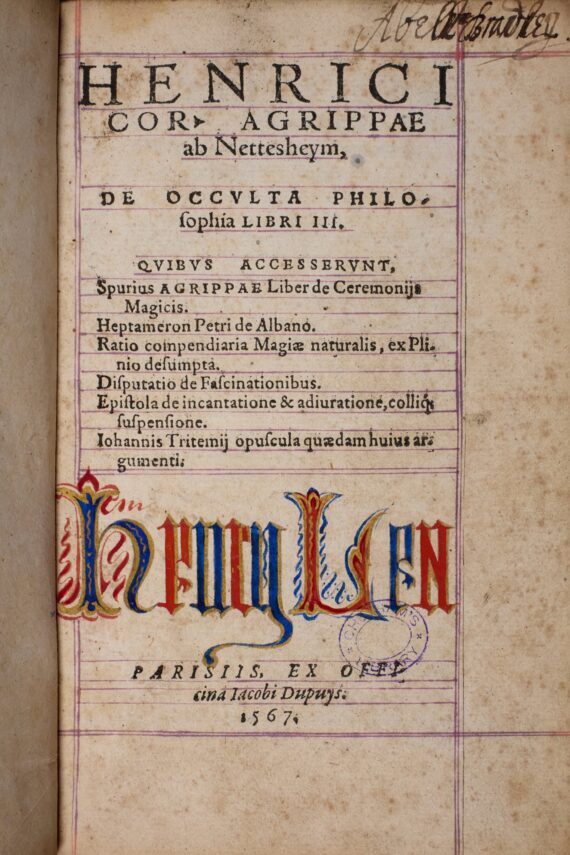 Abell Bradley
HENRICI
COR. AGRIPPAE
ab Nettesheym,
DE OCCVLTA PHILO-
ſophia LIBRI III.
QVIBVS ACCESSERVNT,
Spurius AGRIPPAE Liber de Ceremonijs
Magicis.
Heptameron Petri de Albano.
Ratio compendiaria Magiæ naturalis, ex Pli-
nio deſumpta.
Diſputatio de Faſcinationibus.
Epiſtola de incantatione & adiuratione, collíq;
ſuſpenſione.
Iohannis Tritemij opuſcula quædam huius ar-
gumenti.
Henry Len
CHETHAM'S
LIBRARY
PARISIIS, EX OFFI-
cina Iacobi Dupuys.
1567.